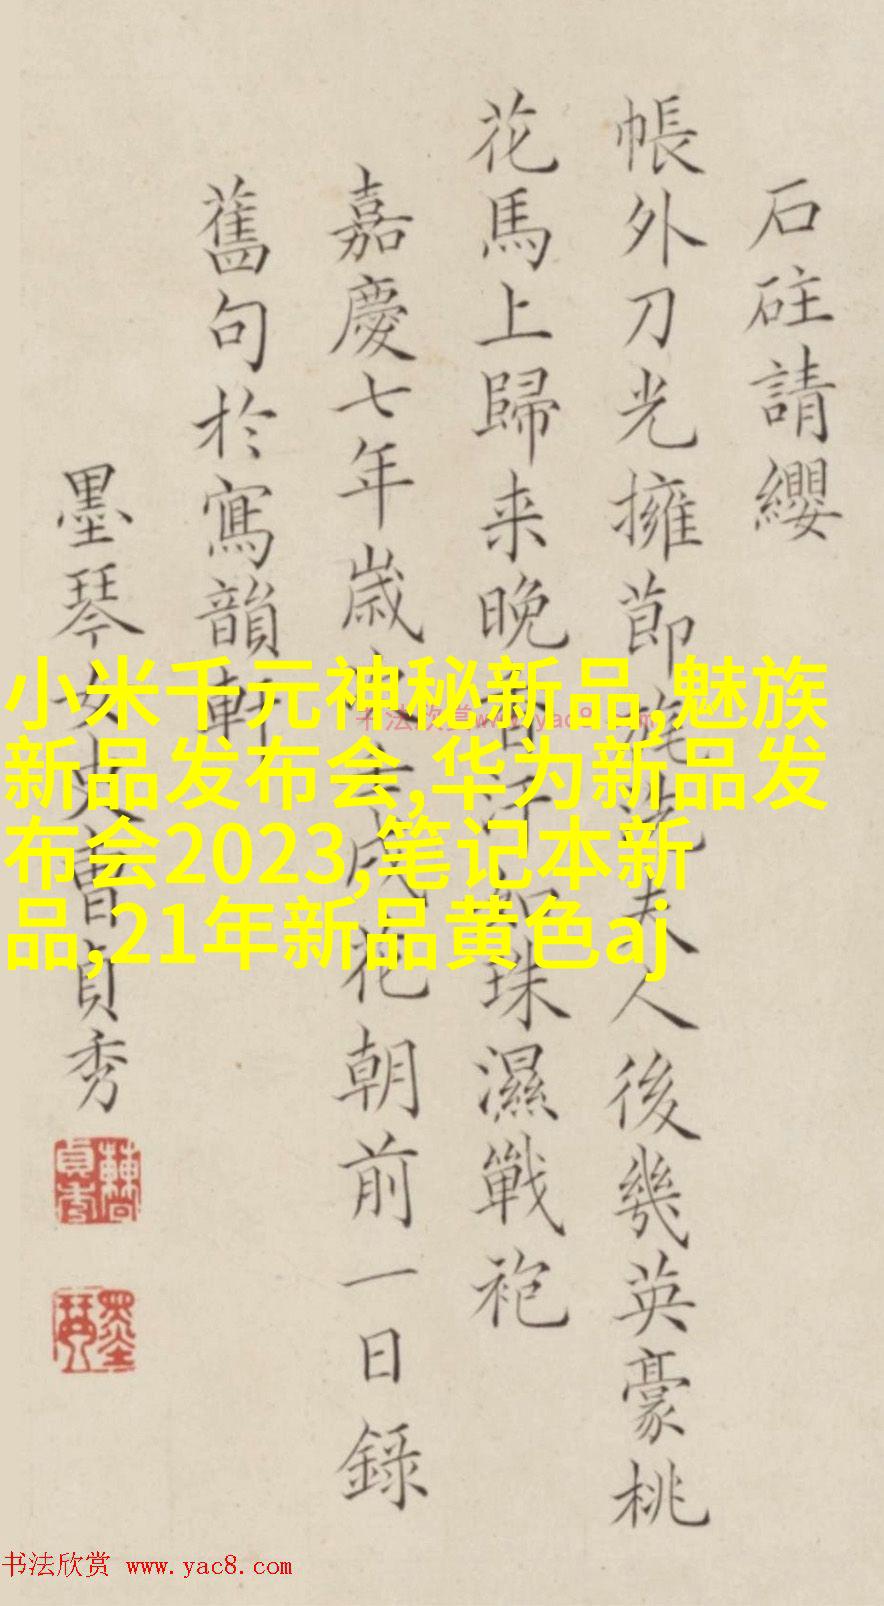 石砫請纓
帳外刀光擁節旄洗夫人後幾英豪桃
花馬上歸来晚香汗如珠濕戰袍
嘉慶七年歲次壬戌花朝前一日錄
舊句於寫韻軒
墨琴女史曹貞秀
小米千元神秘新品,魅族
新品发布会,华为新品发
布会2023,笔记本新
品,21年新品黄色aj
书法欣赏www.yac8.com
书法欣赏 www.yac8.com